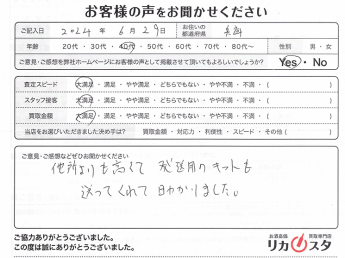 お客様の声をお聞かせください
ご記入日 2024 年 6 月 29 日 お住いの都道府県
年齢 20代・30代・40代・50代・60代・70代・80代〜 性別 男・女
ご意見・ご感想を弊社ホームページにお客様の声として掲載させて頂いてもよろしいでしょうか? Yes・No
査定スピード 大満足・満足・どちらでもない・やや不満・不満・( )
スタッフ接客 大満足・満足・どちらでもない・やや不満・不満・( )
買取金額 大満足・満足・どちらでもない・やや不満・不満・( )
当店をお選びいただきました決め手は? 買取価格・対応力・利便性・スピード・その他( )
ご意見・ご感想などぜひお聞かせください
他所よりも高くて 発送用のキットも
送ってくれて助かりました。
ご協力ありがとうございました。
この度は誠にありがとうございました。
お酒高価買取専門店
リカスタ